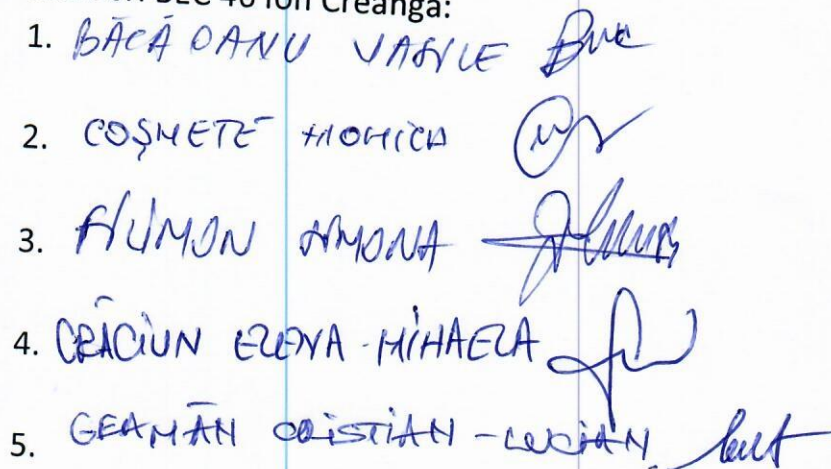 BEC 46 Ion Creangă:
1. BĂCĂOANU VASILE
2. COȘMETE MONICA
3. FILIMON SIMONA
4. CRĂCIUN ELENA-MIHAELA
5. GEAMĂN CRISTIAN-LUCIAN